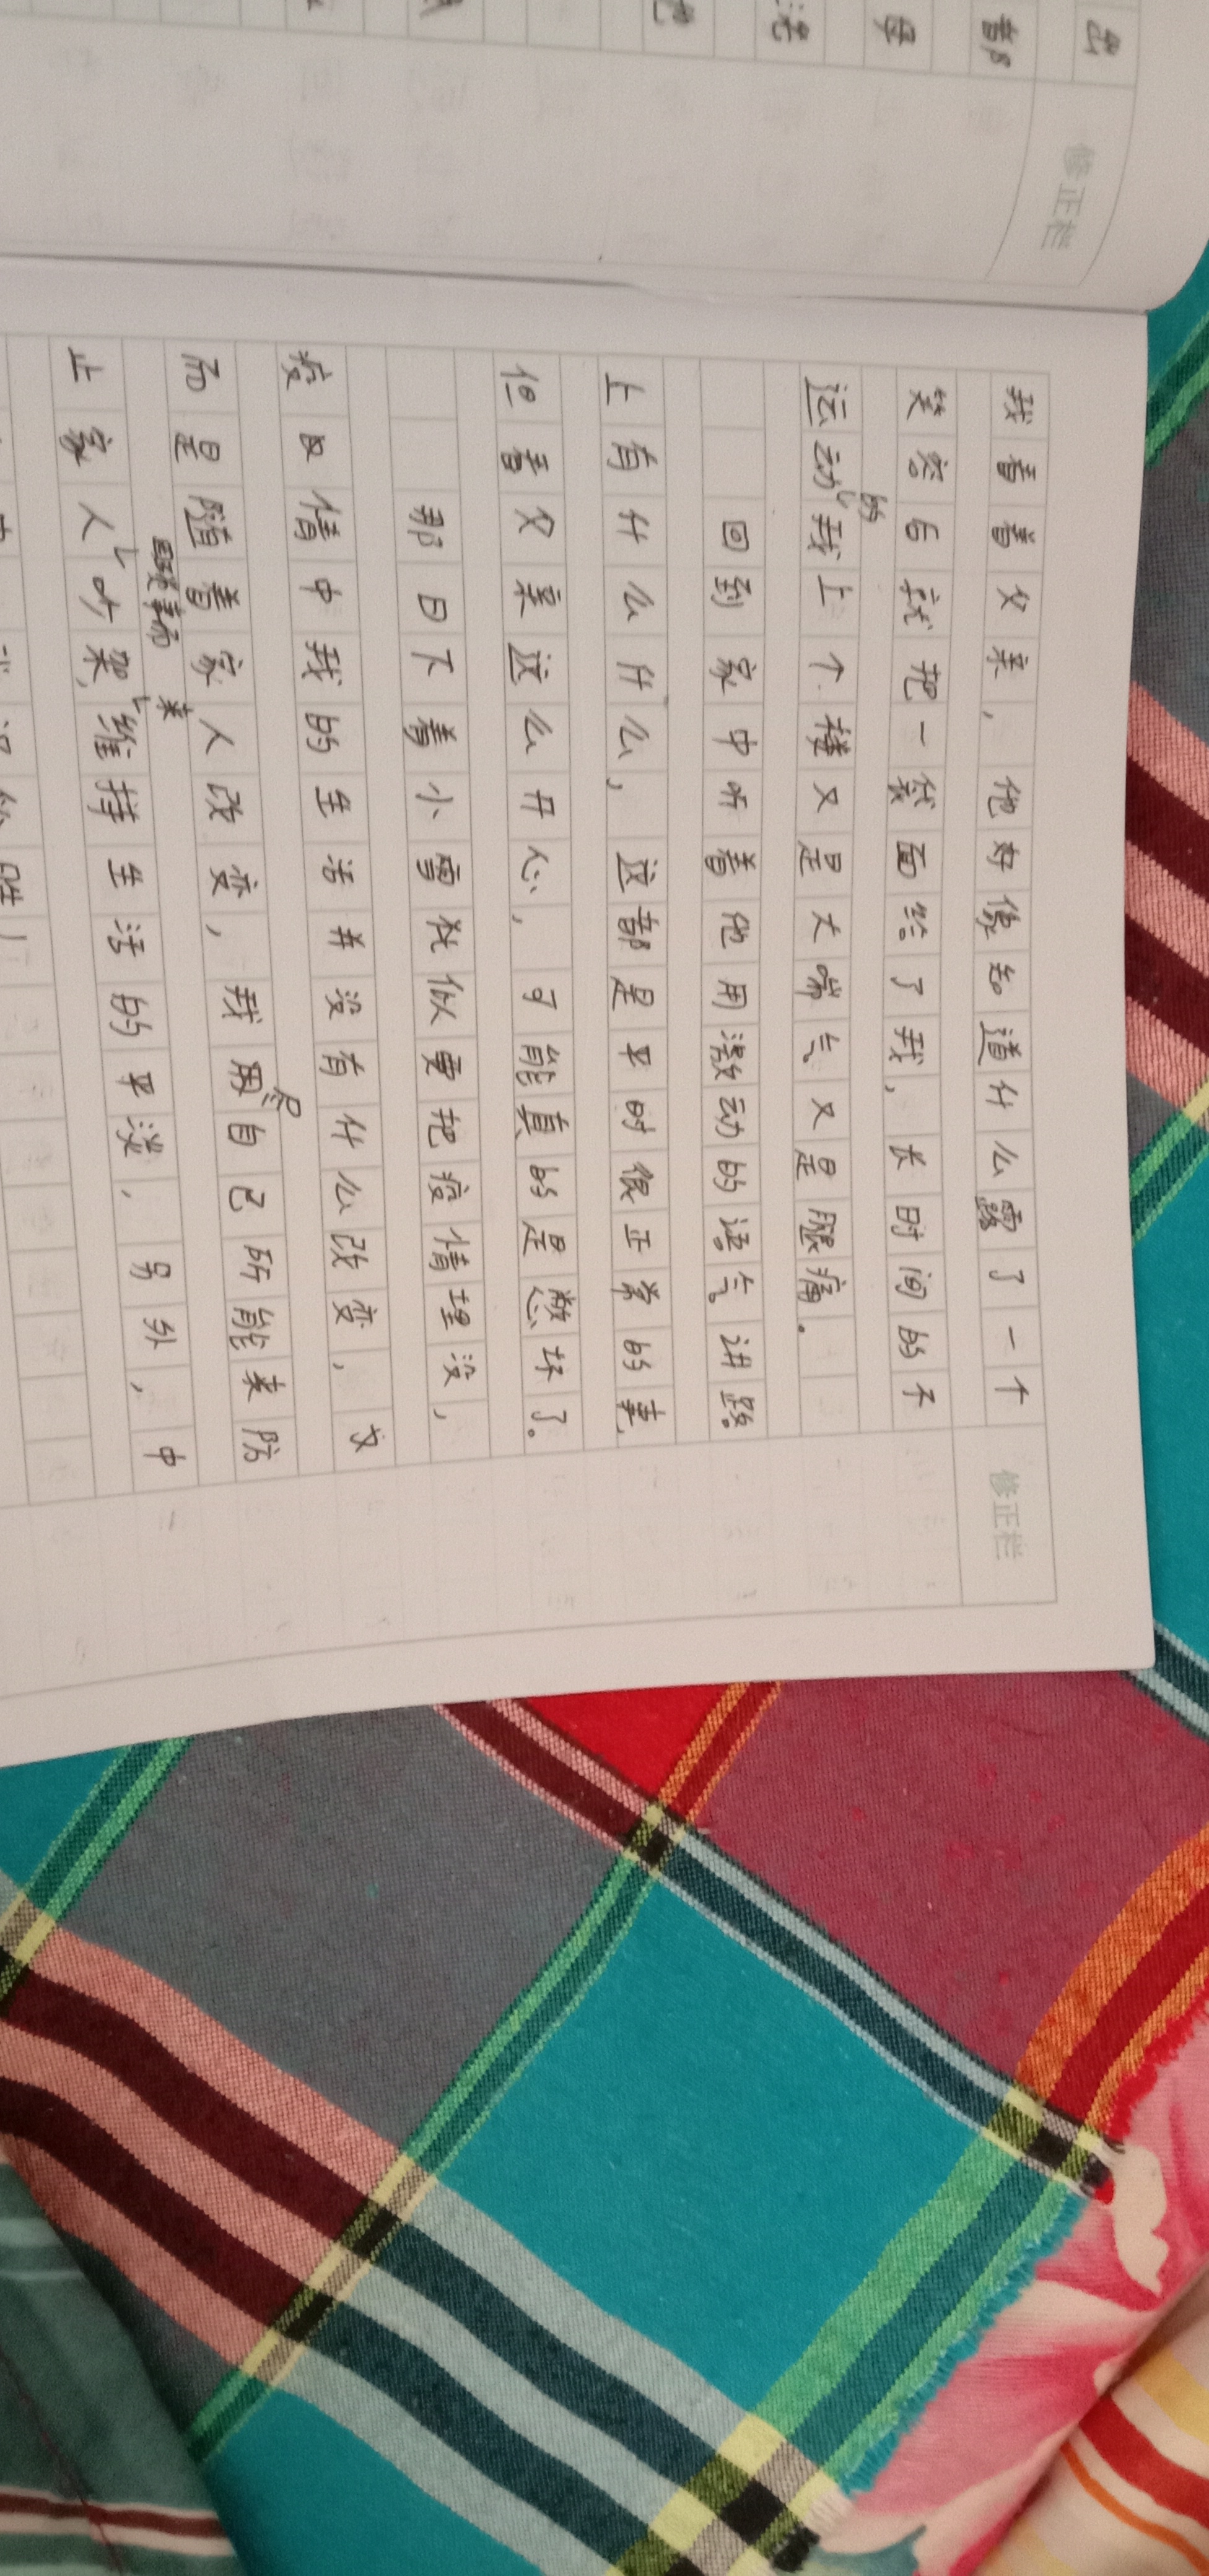 出
都
母
修正栏
修正栏
我看着父亲，他好像知道什么露了一个
笑容后就把一袋面给了我，长时间的不
运动的我上个楼又是大喘气又是腿痛。
回到家中听着他用激动的语气讲路
上有什么什么，这都是平时很正常的事，
但看父亲这么开心，可能真的是憋坏了。
那日下着小雪犹似要把疫情埋没，
疫情中我的生活并没有什么改变，
而是随着家人改变，我尽自己所能来防
止家人吵架，来维持生活的平淡，另外，中